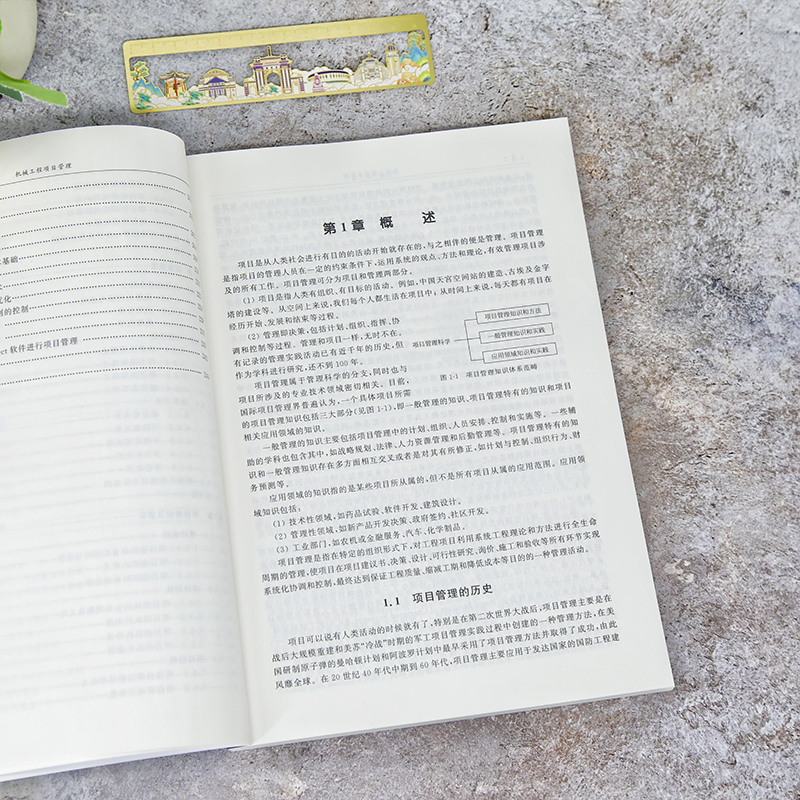 机械工程项目管理
基础
优化
制的控制
ct 软件进行项目管理
第1章 概 述
项目是从人类社会进行有目的的活动开始就存在的,与之相伴的便是管理。项目管理
是指项目的管理人员在一定的约束条件下,运用系统的观点、方法和理论,有效管理项目涉
及的所有工作。项目管理可分为项目和管理两部分。
(1) 项目是指人类有组织、有目标的活动。例如,中国天宫空间站的建造、古埃及金字
塔的建设等。从空间上来说,我们每个人都生活在项目中;从时间上来说,每天都有项目在
经历开始、发展和结束等过程。
(2) 管理即决策,包括计划、组织、指挥、协
调和控制等过程。管理和项目一样,无时不在。
有记录的管理实践活动已有近千年的历史,但
作为学科进行研究,还不到 100 年。
项目管理属于管理科学的分支,同时也与
项目所涉及的专业技术领域密切相关。目前,
国际项目管理界普遍认为,一个具体项目所需
项目管理科学
项目管理知识和方法
一般管理知识和实践
应用领域知识和实践
图 1-1 项目管理知识体系范畴
的项目管理知识包括三大部分(见图 1-1),即一般管理的知识、项目管理特有的知识和项目
相关应用领域的知识。
一般管理的知识主要包括项目管理中的计划、组织、人员安排、控制和实施等。一些辅
助的学科也包含其中,如战略规划、法律、人力资源管理和后勤管理等。项目管理特有的知
识和一般管理知识存在多方面相互交叉或者是对其有所修正,如计划与控制、组织行为、财
务预测等。
应用领域的知识指的是某些项目所从属的,但不是所有项目从属的应用范围。应用领
域知识包括:
(1) 技术性领域,如药品试验、软件开发、建筑设计。
(2) 管理性领域,如新产品开发决策、政府签约、社区开发。
(3) 工业部门,如农机或金融服务、汽车、化学制品。
项目管理是指在特定的组织形式下,对工程项目利用系统工程理论和方法进行全生命
周期的管理,使项目在项目建议书、决策、设计、可行性研究、询价、施工和验收等所有环节实现
系统化协调和控制,最终达到保证工程质量、缩减工期和降低成本等目的的一种管理活动。
1.1 项目管理的历史
项目可以说有人类活动的时候就有了,特别是在第二次世界大战后,项目管理主要是在
战后大规模重建和美苏“冷战”时期的军工项目管理实践过程中创建的一种管理方法,在美
国研制原子弹的曼哈顿计划和阿波罗计划中最早采用了项目管理方法并取得了成功,由此
风靡全球。在 20 世纪 40 年代中期到 60 年代,项目管理主要应用于发达国家的国防工程建